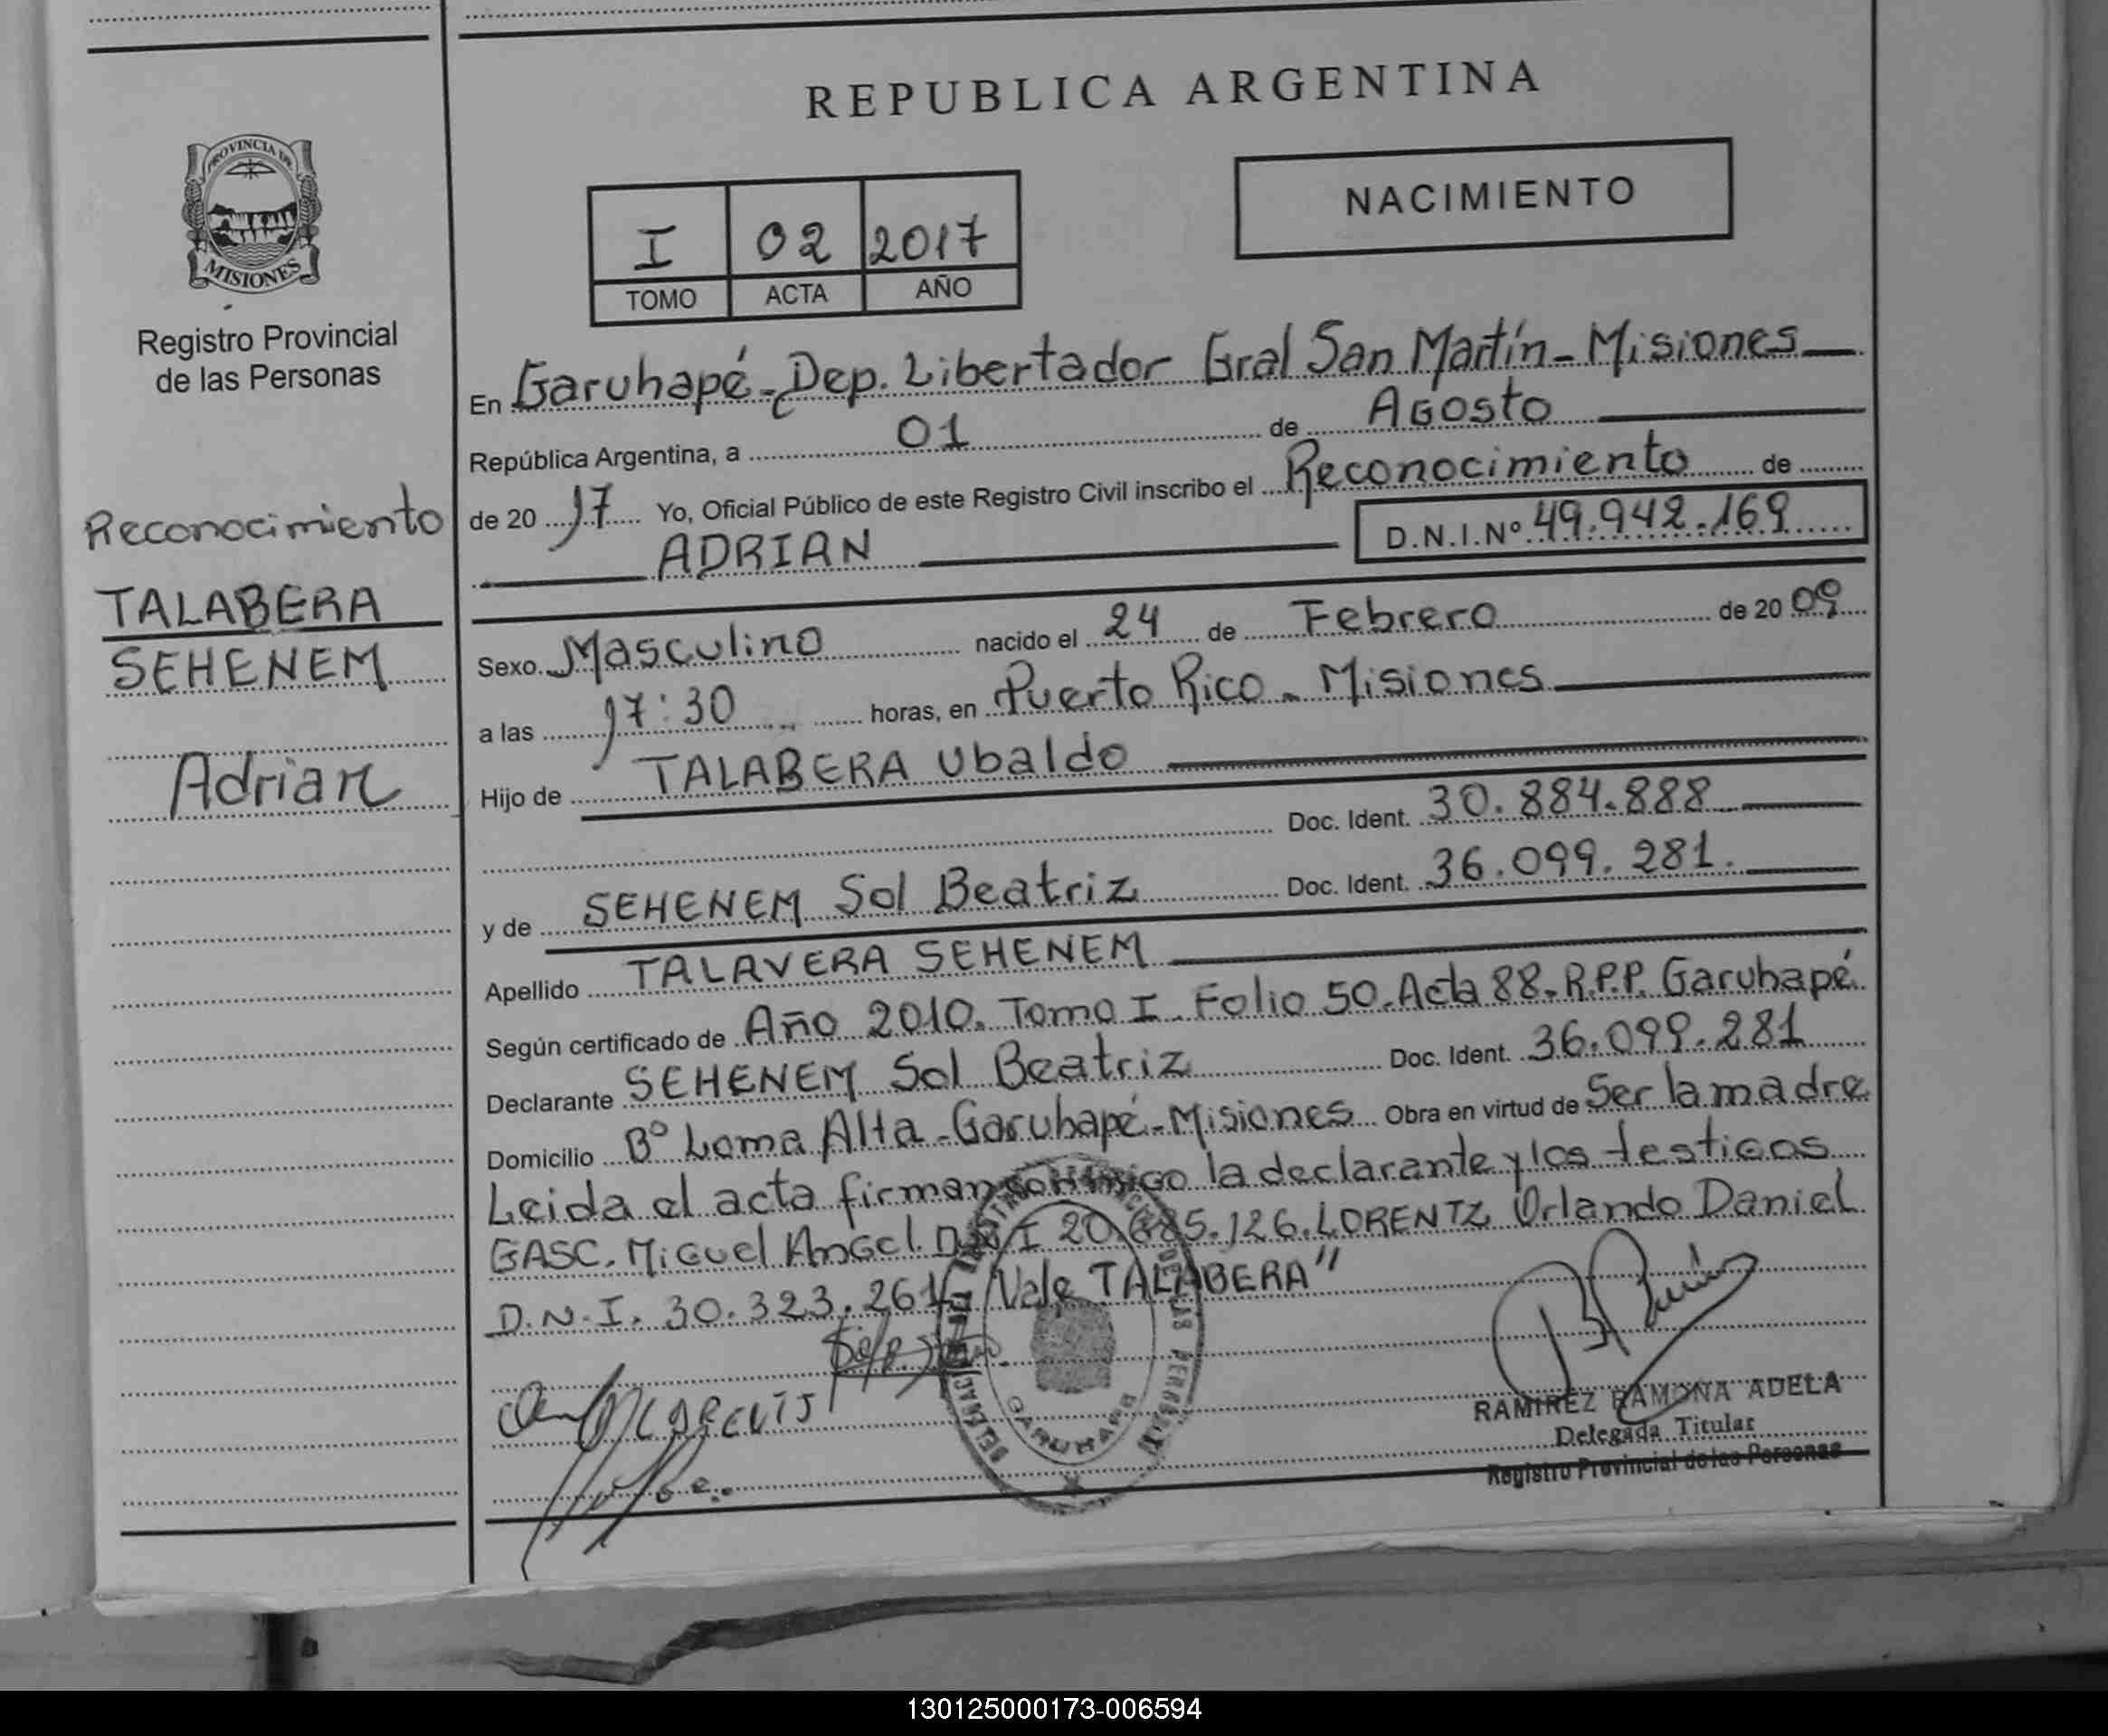 REPUBLICA ARGENTINA
PROVINCIA DE
MISIONES
Registro Provincial
de las Personas
NACIMIENTO
I 02 2017
TOMO ACTA AÑO
En Garuhapé - Dep. Libertador Gral San Martín - Misiones
República Argentina, a 01 de Agosto
de 20 17 Yo, Oficial Público de este Registro Civil inscribo el Reconocimiento de
ADRIAN D.N.I.Nº 49.942.169
Reconocimiento
TALABERA
SEHENEM
Adrian
Sexo Masculino nacido el 24 de Febrero de 20 09
a las 17:30 horas, en Puerto Rico - Misiones
Hijo de TALABERA Ubaldo
Doc. Ident. 30.884.888
y de SEHENEM Sol Beatriz Doc. Ident. 36.099.281.
Apellido TALAVERA SEHENEM
Según certificado de Año 2010. Tomo I. Folio 50. Acta 88. R.P.P. Garuhapé
Declarante SEHENEM Sol Beatriz Doc. Ident. 36.099.281
Domicilio Bº Loma Alta - Garuhapé - Misiones Obra en virtud de Ser la madre
Leida el acta firman conmigo la declarante y los testigos
GASC. Miguel Angel. D.N.I 20.685.126. LORENTZ Orlando Daniel
D.N.I. 30.323.261 "Vale TALABERA"
GARUHAPE
RAMIREZ RAMONA ADELA
Delegada Titular
Registro Provincial de las Personas
130125000173-006594